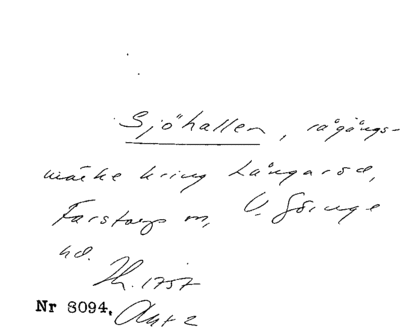 Sjöhallen, rågångs-
märke kring Långaröd,
Farstorps sn, V. Göinge
hd.
Th. 1757
Nr 8094, Akt 2